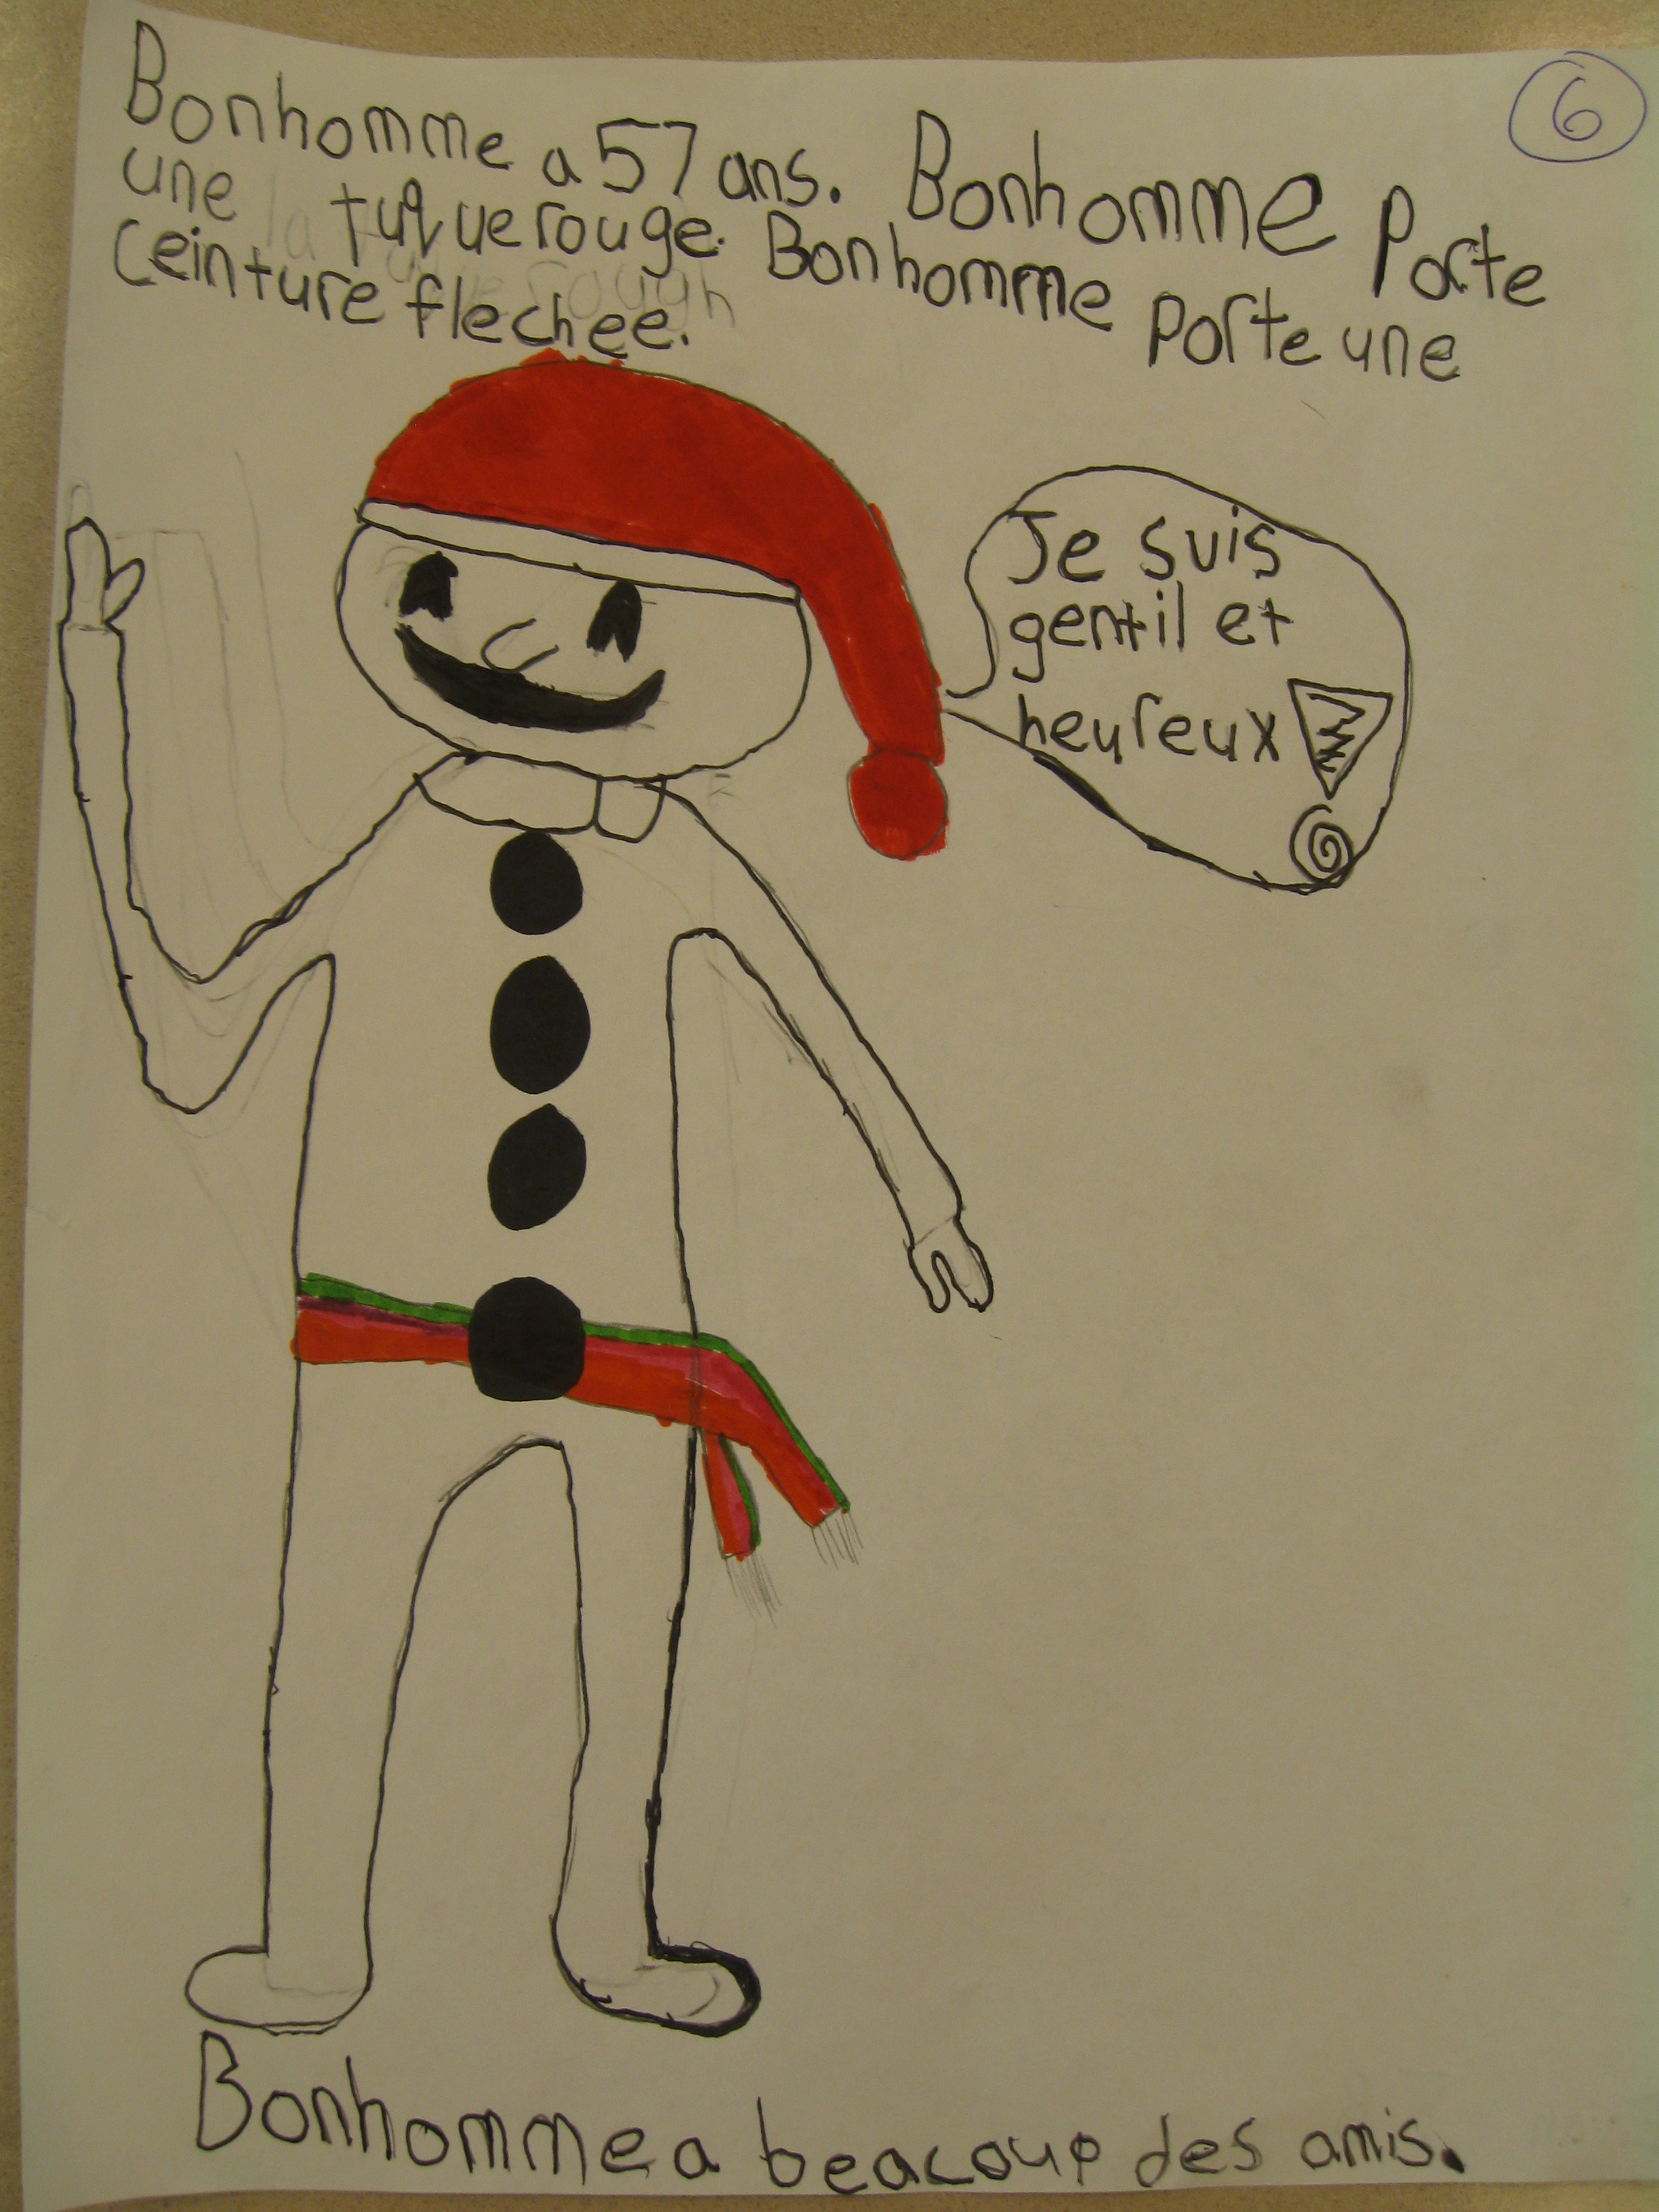 6
Bonhomme a 57 ans. Bonhomme Porte
une tuque rouge. Bonhomme porte une
ceinture flechee.
Je suis
gentil et
heureux
Bonhomme a beacoup des amis.